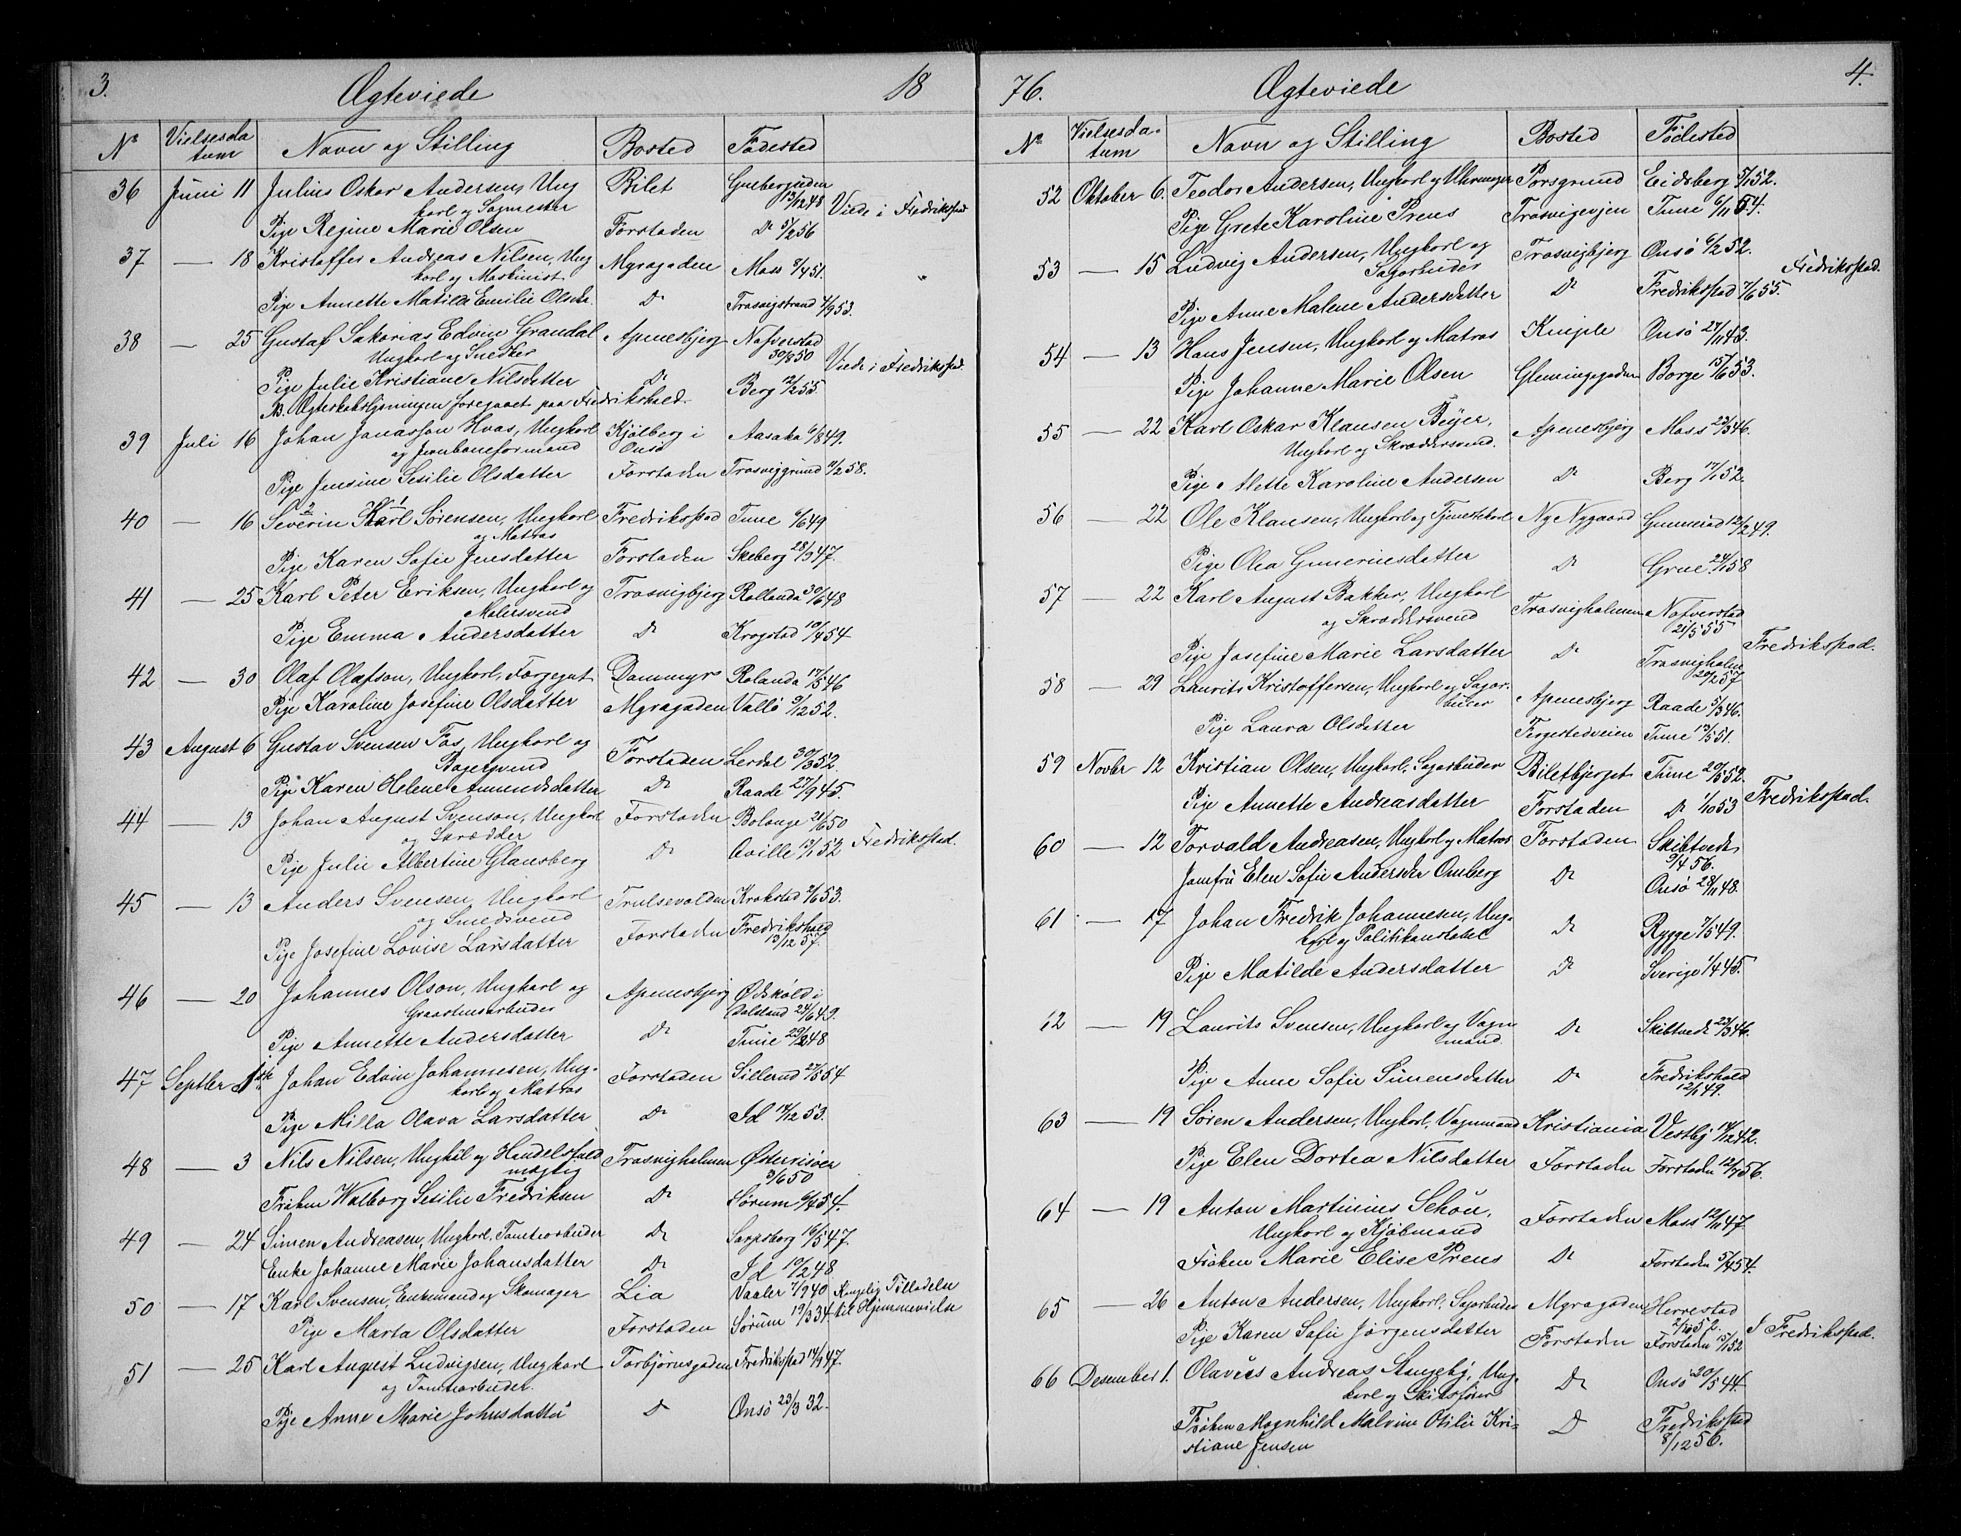 3. Ægteviede 18
No Vielsesdatum Navn og Stilling Bosted Fødested
36 Juni 11 Julius Oskar Andersen, Ung Bilet
karl og Sagmester 13/12 48 Viede i Fredriksstad
Pige Regine Marie Olsen Forstaden Do 5/2 56
37 — 18 Kristoffer Andreas Nilsen, Ung Myragaden Moss 8/4 51 "
karl og Maskinist
Pige Annette Matilde Emilie Olsen Do Trosvigstrand 4/9 53.
38 — 25 Gustaf Sakarias Edvin Grandal Apenesbjerg Nafverstad
Ungkarl og Snedker 30/8 50 Viede i Fredriksstad
Pige Julie Kristiane Nilsdatter Do Berg 12/2 55.
NB. Ægteskabslysningen foregaaet paa Fredrikshald.
39 Juli 16 Johan Jonasson Hvas, Ungkarl Kjølberg i Aasaka 6/8 49.
og Jernbaneformand Onsø
Pige Jensine Sesilie Olsdatter Forstaden Trosviggrund 11/2 58.
40 — 16 Severin Karl Sørensen, Ungkarl Fredriksstad Tune 6/6 49
og Matros
Pige Karen Sofie Jensdatter Forstaden Skeberg 28/9 47.
41 — 25 Karl Peter Eriksen, Ungkarl og Trosvigbjerg Rollanda 30/6 48
Malersvend
Pige Emma Andersdatter Do Krogstad 10/4 54
42 — 30 Olaf Olafson, Ungkarl, Dammyr Rolanda 17/5 46
Pige Karoline Josefine Olsdatter Myragaden Vallø 9/12 52.
43 August 6 Gustav Svensen Fos, Ungkarl og Forstaden Lerdal 30/3 52.
Bagersvend
Pige Karen Helene Amundsdatter Do Raade 27/9 45.
44 — 13 Johan August Svenson, Ungkarl Forstaden Bolange 21/6 50
og Skrædder Fredriksstad.
Pige Julie Albertine Glansberg Do Qville 13/1 52
45 — 13 Anders Svensen, Ungkarl Trulsevolden Krokstad 2/6 53.
og Smedsvend
Pige Josefine Lovise Larsdatter Forstaden Fredrikshald
19/12 57.
46 — 20 Johannes Olson, Ungkarl og Apenesbjerg Ødskøld i
Graastensarbeider Dalsland 24/6 49.
Pige Annette Andersdatter Do Tune 29/2 48
47 Septber 1ste Johan Edvin Johannesen, Ung- Forstaden Sillerud 27/5 54
karl og Matros
Pige Milla Olava Larsdatter Do Id 14/12 53.
48 — 3 Nils Nilsen, Ungkarl og Handelsfuld Trosvigholmen Østerrisøer
mægtig 3/6 50
Frøken Walborg Sesilie Fredriksen Do Sørum 6/4 54.
49 — 24 Simen Andreasen, Ungkarl, Tomtearbeider Do Sarpsborg 16/5 47.
Enke Johanne Marie Johansdatter Do Id 10/2 48
50 — 17 Karl Svensen, Enkemand og Skomager Lia Vaaler 7/9 40 Kongelig Tilladelse
Pige Marta Olsdatter Forstaden Sørum 19/3 34 til Hjemmevielse
51 — 25 Karl August Ludvigsen, Ungkarl Torbjørnsgaden Fredriksstad 14/9 47.
og Tomtearbeider.
Pige Anne Marie Johnsdatter D Onsø 23/3 32.
76. Ægteviede 4.
No Vielsesdatum Navn og Stilling Bosted Fødested
52 Oktober 6. Teodor Andersen, Ungkarl og Uhrmager Porsgrund Eidsberg 5/1 52.
Pige Grete Karoline Prens Trosvigveien Tune 6/11 54.
53 — 15 Ludvig Andersen, Ungkarl og Trosvigbjerg Onsø 6/2 52.
Sagarbeider Fredriksstad.
Pige Anne Malene Andersdatter Do Fredriksstad 7/6 55.
54 — 13 Hans Jensen, Ungkarl og Matros Kniple Onsø 24/11 43.
Pige Johanne Marie Olsen Glemingegaden Borge 15/6 53.
55 — 22 Karl Oskar Klausen Beyer, Apenesbjerg Moss 22/3 46.
Ungkarl og Skræddersvend.
Pige Alette Karoline Andersen Do Berg 17/1 52.
56 — 22 Ole Klausen, Ungkarl og Tjenestekarl Ny Nygaard Gunnerud 12/2 49.
Pige Olea Gunerinesdatter Do Grue 24/1 58
57 — 22 Karl August Bakker, Ungkarl Trosvigholmen Nafverstad
og Skræddersvend 21/5 55
Pige Josefine Marie Larsdatter Do Trosvigholm Fredriksstad.
20/2 57
58 — 29 Laurits Kristoffersen, Ungkarl og Sagar- Apenesbjerg Raade 5/3 46.
beider
Pige Laura Olsdatter Fergestedveien Tune 19/5 51.
59 Novbr 12 Kristian Olsen, Ungkarl, Sagarbeider Biletbjerget Tune 20/5 52.
Pige Annette Andreasdatter Forstaden Do 1/10 53 Fredriksstad.
60 — 12 Torvald Andreasen, Ungkarl og Matros Forstaden Skibtvedt
9/4 56.
Jomfru Elen Sofie Andersdr Omberg Do Onsø 28/11 48.
61 — 17 Johan Fredrik Johannesen, Ung- Do Rygge 7/5 49.
karl og Politikonstabel
Pige Matilde Andersdatter Do Sverige 1/4 45.
62 — 19 Laurits Svensen, Ungkarl og Vogn Do Skibtvedt 23/3 46.
mand
Pige Anne Sofie Simensdatter Do Fredrikshald
12/1 49.
63 — 19 Søren Andersen, Ungkarl, Vognmand Kristiania Vestby 14/12 42.
Pige Elen Dortea Nilsdatter Forstaden Forstaden 12/7 56.
64 — 19 Anton Martinius Schou, Forstaden Moss 12/11 47.
Ungkarl og Kjøbmand
Frøken Marie Elise Prens Do Forstaden 5/4 54.
65 — 26 Anton Andersen, Ungkarl, Sagarbeider Myragaden Herrestad
2/10 52.
Pige Karen Sofie Jørgensdatter Forstaden Forstaden 15/1 52 I Fredriksstad.
66 Desember 1. Olavus Andreas Stangeby, Ung- Do Onsø 20/5 44
karl og Skibsfører
Frøken Magnhild Malvine Otilie Kri- D Fredriksstad
stiane Jensen 8/12 56.